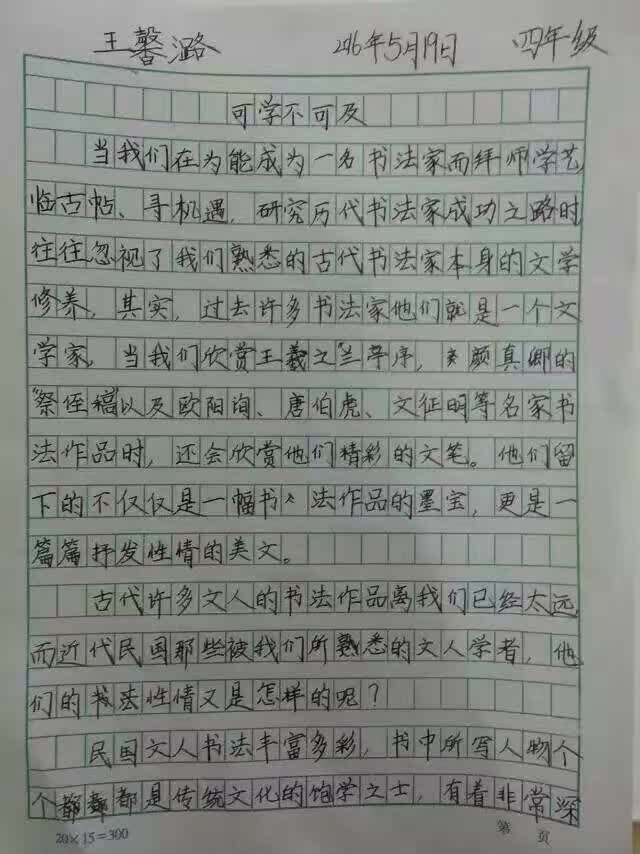 王馨潞 2016年5月19日 四年级
可学不可及
当我们在为能成为一名书法家而拜师学艺
临古帖、寻机遇，研究历代书法家成功之路时
往往忽视了我们熟悉的古代书法家本身的文学
修养，其实，过去许多书法家他们就是一个文
学家，当我们欣赏王羲之“兰亭序，颜真卿的
“祭侄稿”以及欧阳询、唐伯虎、文征明等名家书
法作品时，还会欣赏他们精彩的文笔。他们留
下的不仅仅是一幅书法作品的墨宝，更是一
篇篇抒发性情的美文。
古代许多文人的书法作品离我们已经太远
而近代民国那些被我们所熟悉的文人学者，他
们的书法性情又是怎样的呢？
民国文人书法丰富多彩，书中所写人物个
个都是传统文化的饱学之士，有着非常深
20×15=300
第 页